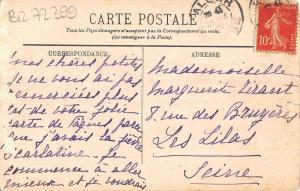 BR 72399
CARTE POSTALE
Tous les Pays étrangers n'acceptent pas la Correspondance au recto.
(Se renseigner à la Poste.)
CORRESPONDANCE
mes chères petites
Je ne vous ai pas
remerciées plus
tôt de votre jolie
carte de Pâques parce
que j'avais la fièvre
scarlatine. Je
commence à aller
mieux et je voudrais
ADRESSE
Mademoiselle
Marguerite
8 rue des Bruyères
Les Lilas
Seine
10